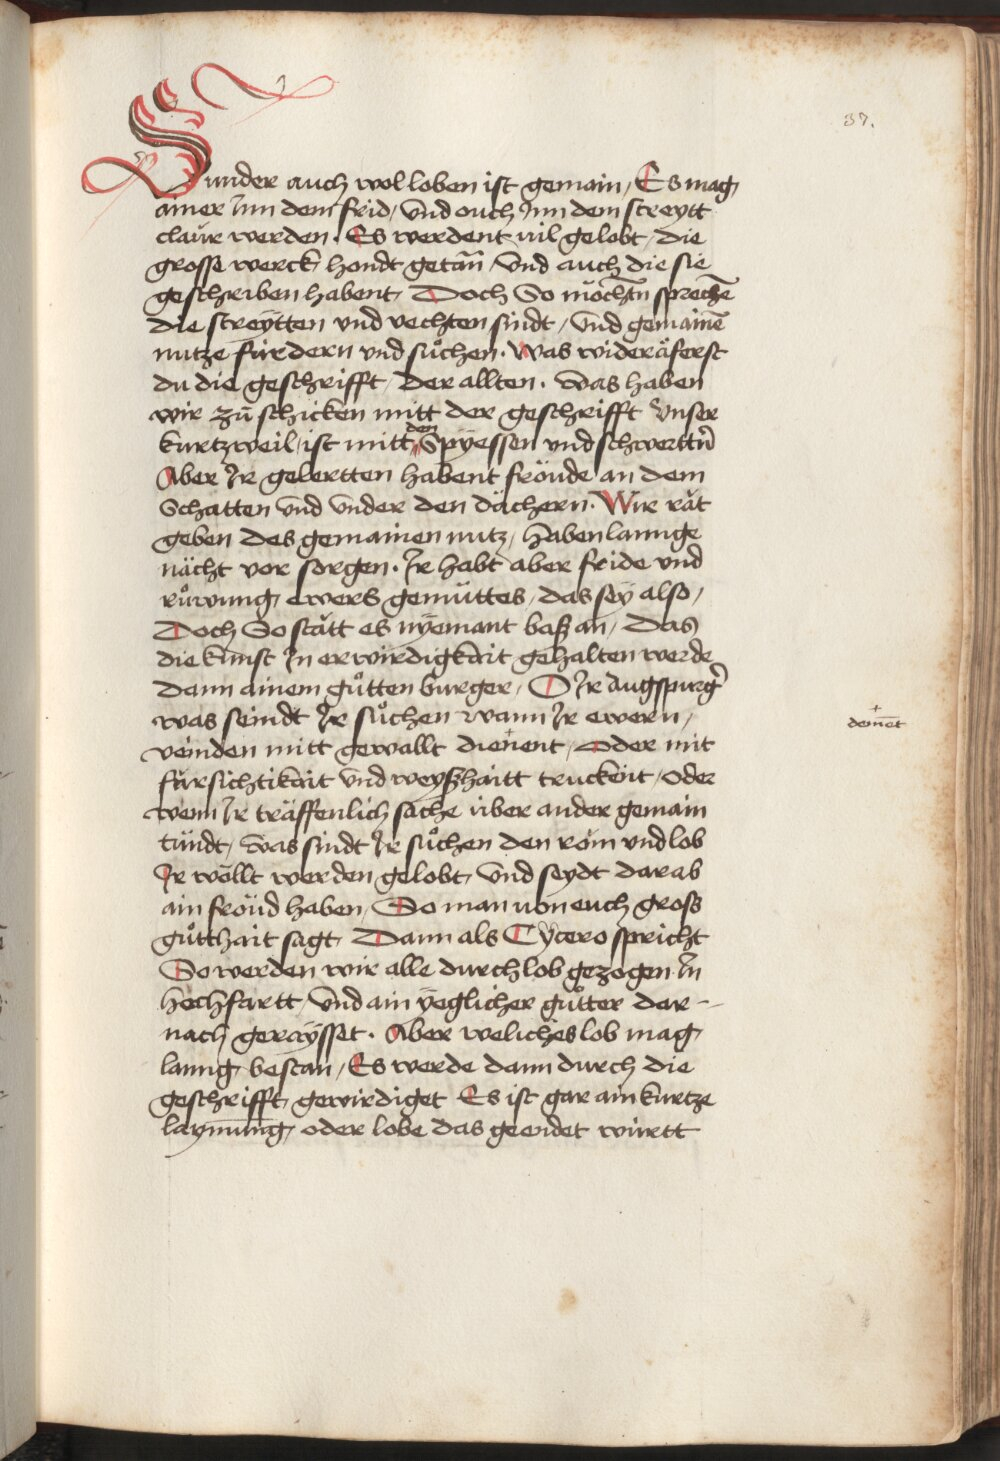 37.
Sunder auch wol loben ist gemain, Es mag
ainer Inn dem frid, vnd ouch Inn dem streytt
claur werden. Es werdent vil gelobt, die
grosse werck hondt getan̄ vnd auch die sie
geschriben habent, Doch So möchtn̄ sprechē
die streÿtten vnd vechten sindt, vnd gemainē
nutze fürdern vnd suͦchen. Was wideräferst
du die geschrifft, Der allten. was haben
wir zuͦ schicken mitt der geschrifft Vnser
kurtzweil, ist mitt den Spÿessen vnd schwerttn̄
Aber Ir gelertten habent fröude an dem
Schatten vnd vnder den dächern. Wir rät
geben des gemainen nutz, haben lannge
nächt vor sorgen. Ir habt aber fride vnd
ruͦwung, ewers gemüttes, das sey also,
Doch So stätt es nÿemant bas an, Das
die kunst In erwirdigkait gehalten werde
dann ainem guͦtten burger, O Ir Augspurg̉
was seindt Ir suͦchen wann Ir ewern,
veinden mitt gewallt dienent, Oder mit
fürsichtikait vnd weyszhaitt truckent, oder
wenn Ir träffenlich sache über ander gemain
tündt, was sindt Ir suͦchen den röm vnd lob
Ir wällt werden gelobt, vnd seydt darab
ain fröud haben, So man von euch gross
guͦtthait sagt, Dann als Tÿcero spricht
So werden wir alle durch lob gezogen In
hochfartt, vnd ain ÿeglicher guͦtter dar-
nach geraÿsset. Aber weliches lob mag
lanng bestan, Es werde dann durch die
geschrifft, gewirdiget Es ist gar ain kurtze
laymūng, oder lobe das geendet württ
+
demēt